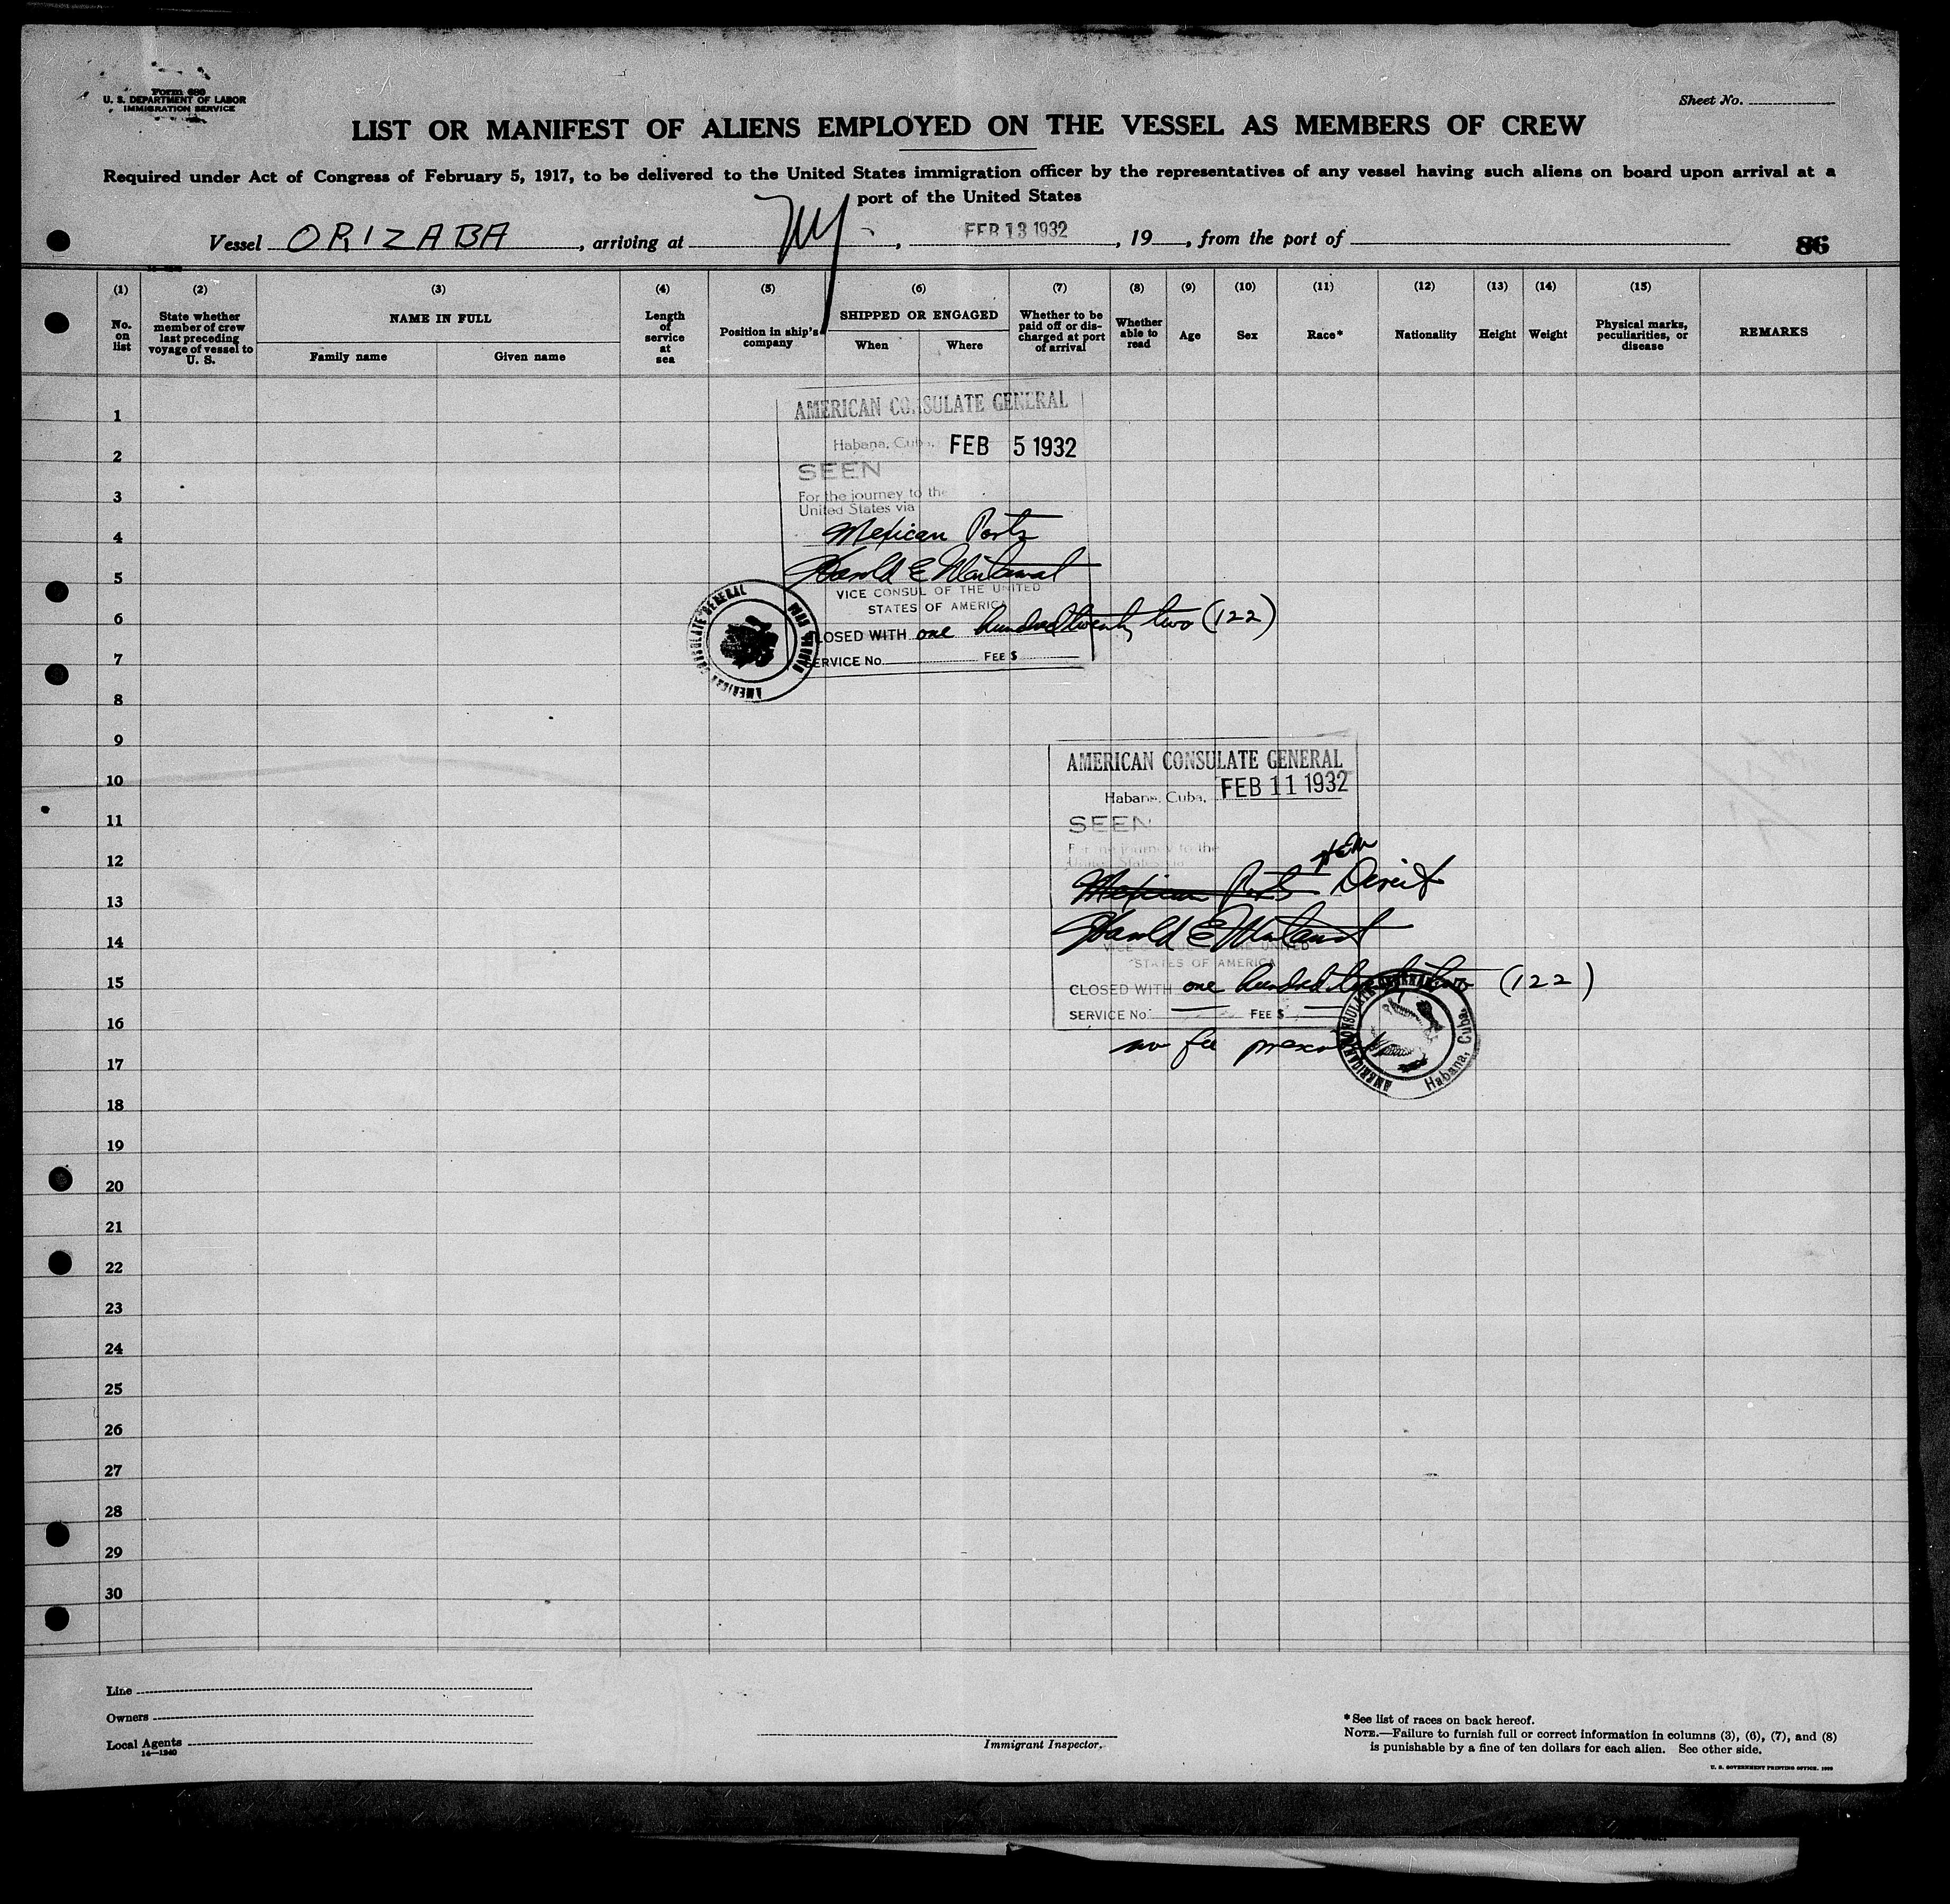 Form 680
U. S. DEPARTMENT OF LABOR
IMMIGRATION SERVICE
Sheet No.
LIST OR MANIFEST OF ALIENS EMPLOYED ON THE VESSEL AS MEMBERS OF CREW
Required under Act of Congress of February 5, 1917, to be delivered to the United States immigration officer by the representatives of any vessel having such aliens on board upon arrival at a
port of the United States
Vessel ORIZABA, arriving at NY., FEB 13 1932, 19, from the port of
86
(1) (2) (3) (4) (5) (6) (7) (8) (9) (10) (11) (12) (13) (14) (15)
No. on list
State whether member of crew last preceding voyage of vessel to U. S.
NAME IN FULL
Family name
Given name
Length of service at sea
Position in ship's company
SHIPPED OR ENGAGED
When
Where
Whether to be paid off or discharged at port of arrival
Whether able to read
Age
Sex
Race*
Nationality
Height
Weight
Physical marks, peculiarities, or disease
REMARKS
1
2
3
4
5
6
7
8
9
10
11
12
13
14
15
16
17
18
19
20
21
22
23
24
25
26
27
28
29
30
AMERICAN CONSULATE GENERAL
Habana, Cuba, FEB 5 1932
SEEN
For the journey to the
United States via
Mexican Ports
Harold E
VICE CONSUL OF THE UNITED
STATES OF AMERICA
CLOSED WITH one hundred twenty two (122)
SERVICE No. FEE $
AMERICAN CONSULATE GENERAL
AMERICAN CONSULATE GENERAL
Habana, Cuba, FEB 11 1932
SEEN
For the journey to the
United States via
Mexican Ports Direct
HEM
Harold E
VICE CONSUL OF THE UNITED
STATES OF AMERICA
CLOSED WITH one hundred twenty two (122)
SERVICE No. FEE $
no fee
AMERICAN CONSULATE GENERAL
Habana, Cuba.
Line
Owners
Local Agents
14—1240
Immigrant Inspector.
*See list of races on back hereof.
NOTE.—Failure to furnish full or correct information in columns (3), (6), (7), and (8)
is punishable by a fine of ten dollars for each alien. See other side.
U. S. GOVERNMENT PRINTING OFFICE.